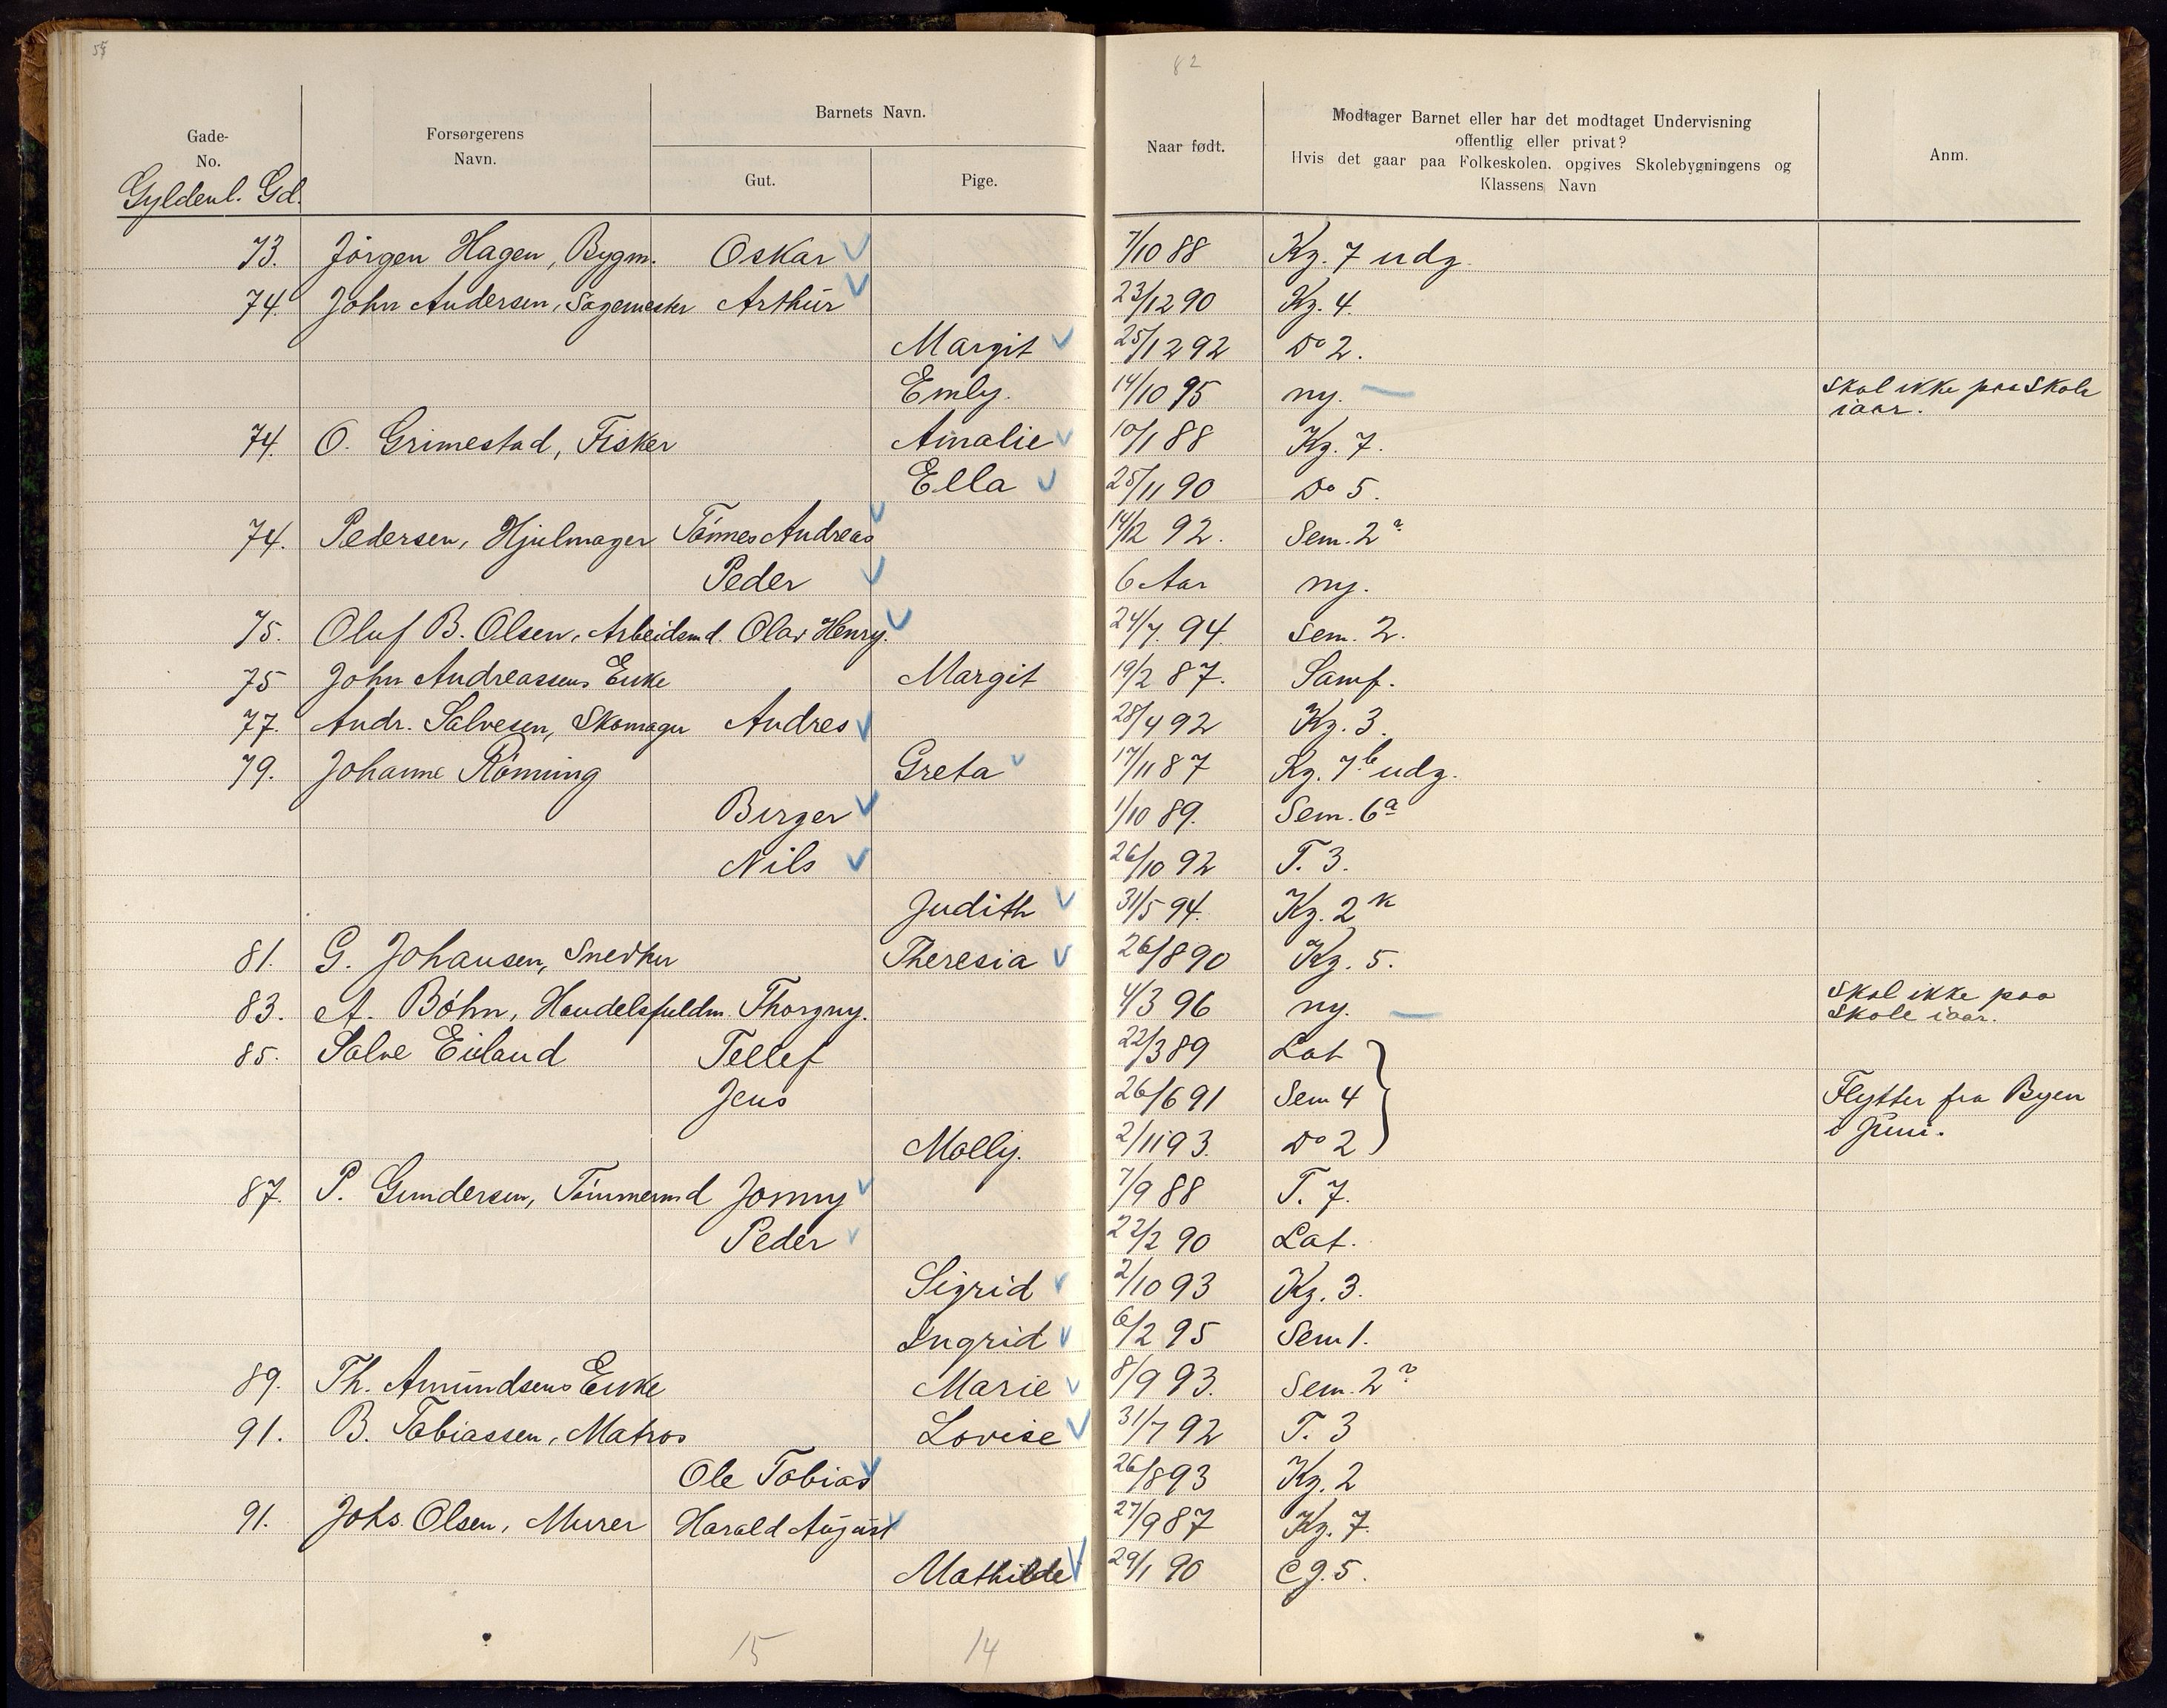 82
Gade-
No.
Forsørgerens
Navn.
Barnets Navn.
Gut.
Pige.
Naar født.
Modtager Barnet eller har det modtaget Undervisning
offentlig eller privat?
Hvis det gaar paa Folkeskolen. opgives Skolebygningens og
Klassens Navn
Anm.
Gyldenl. Gd.
73. Jörgen Hagen, Bygm. Oskar 7/10 88 Kg. 7 udg.
74. John Andersen, Sagemester Arthur 23/12 90 Kg. 4.
Margit 25/12 92 Do 2.
Emly. 14/10 95 ny. — Skal ikke paa Skole
iaar.
74. O. Grimestad, Fisker Amalie 10/1 88 Kg. 7.
Ella 25/11 90 Do 5.
74. Pedersen, Hjulmager Tönnes Andreas 14/12 92. Sem. 2
Peder 6 Aar ny.
75. Oluf B. Olsen, Arbeidsmd. Olav Henry. 24/7. 94. Sem. 2.
75 John Andreassens Enke Margit 19/2 87. Samf.
77. Andr. Salvesen, Skomager Andres 28/4 92 Kg. 3.
79. Johanne Rönning Greta 17/11 87 Kg. 7b udg.
Birger 1/10 89. Sem. 6a
Nils 26/10 92 T. 3.
Judith 31/5 94. Kg. 2
81. G. Johansen, Snedker Theresia 26/8 90 Kg. 5.
83. A. Böhn, Handelsfuldm. Thorgny. 4/3 96 ny. — Skal ikke paa
Skole iaar.
85. Salve Eieland Tellef 22/3 89 Lat
Jens 26/6 91 Sem 4 Flytter fra Byen
i Juni.
Molly. 2/11 93. Do 2
87. P. Gundersen, Tömmermd Jonny 7/9 88 T. 7.
Peder 22/2 90 Lat.
Sigrid 2/10 93 Kg. 3.
Ingrid 6/2 95 Sem 1.
89. Th. Amundsens Enke Marie 8/9 93. Sem. 2
91. B. Tobiassen, Matros Lovise 31/7 92 T. 3
Ole Tobias 26/8 93 Kg. 2
91. Johs. Olsen, Murer Harald August 27/9 87 Kg. 7.
Mathilde 29/1 90 Cg. 5.
15 14